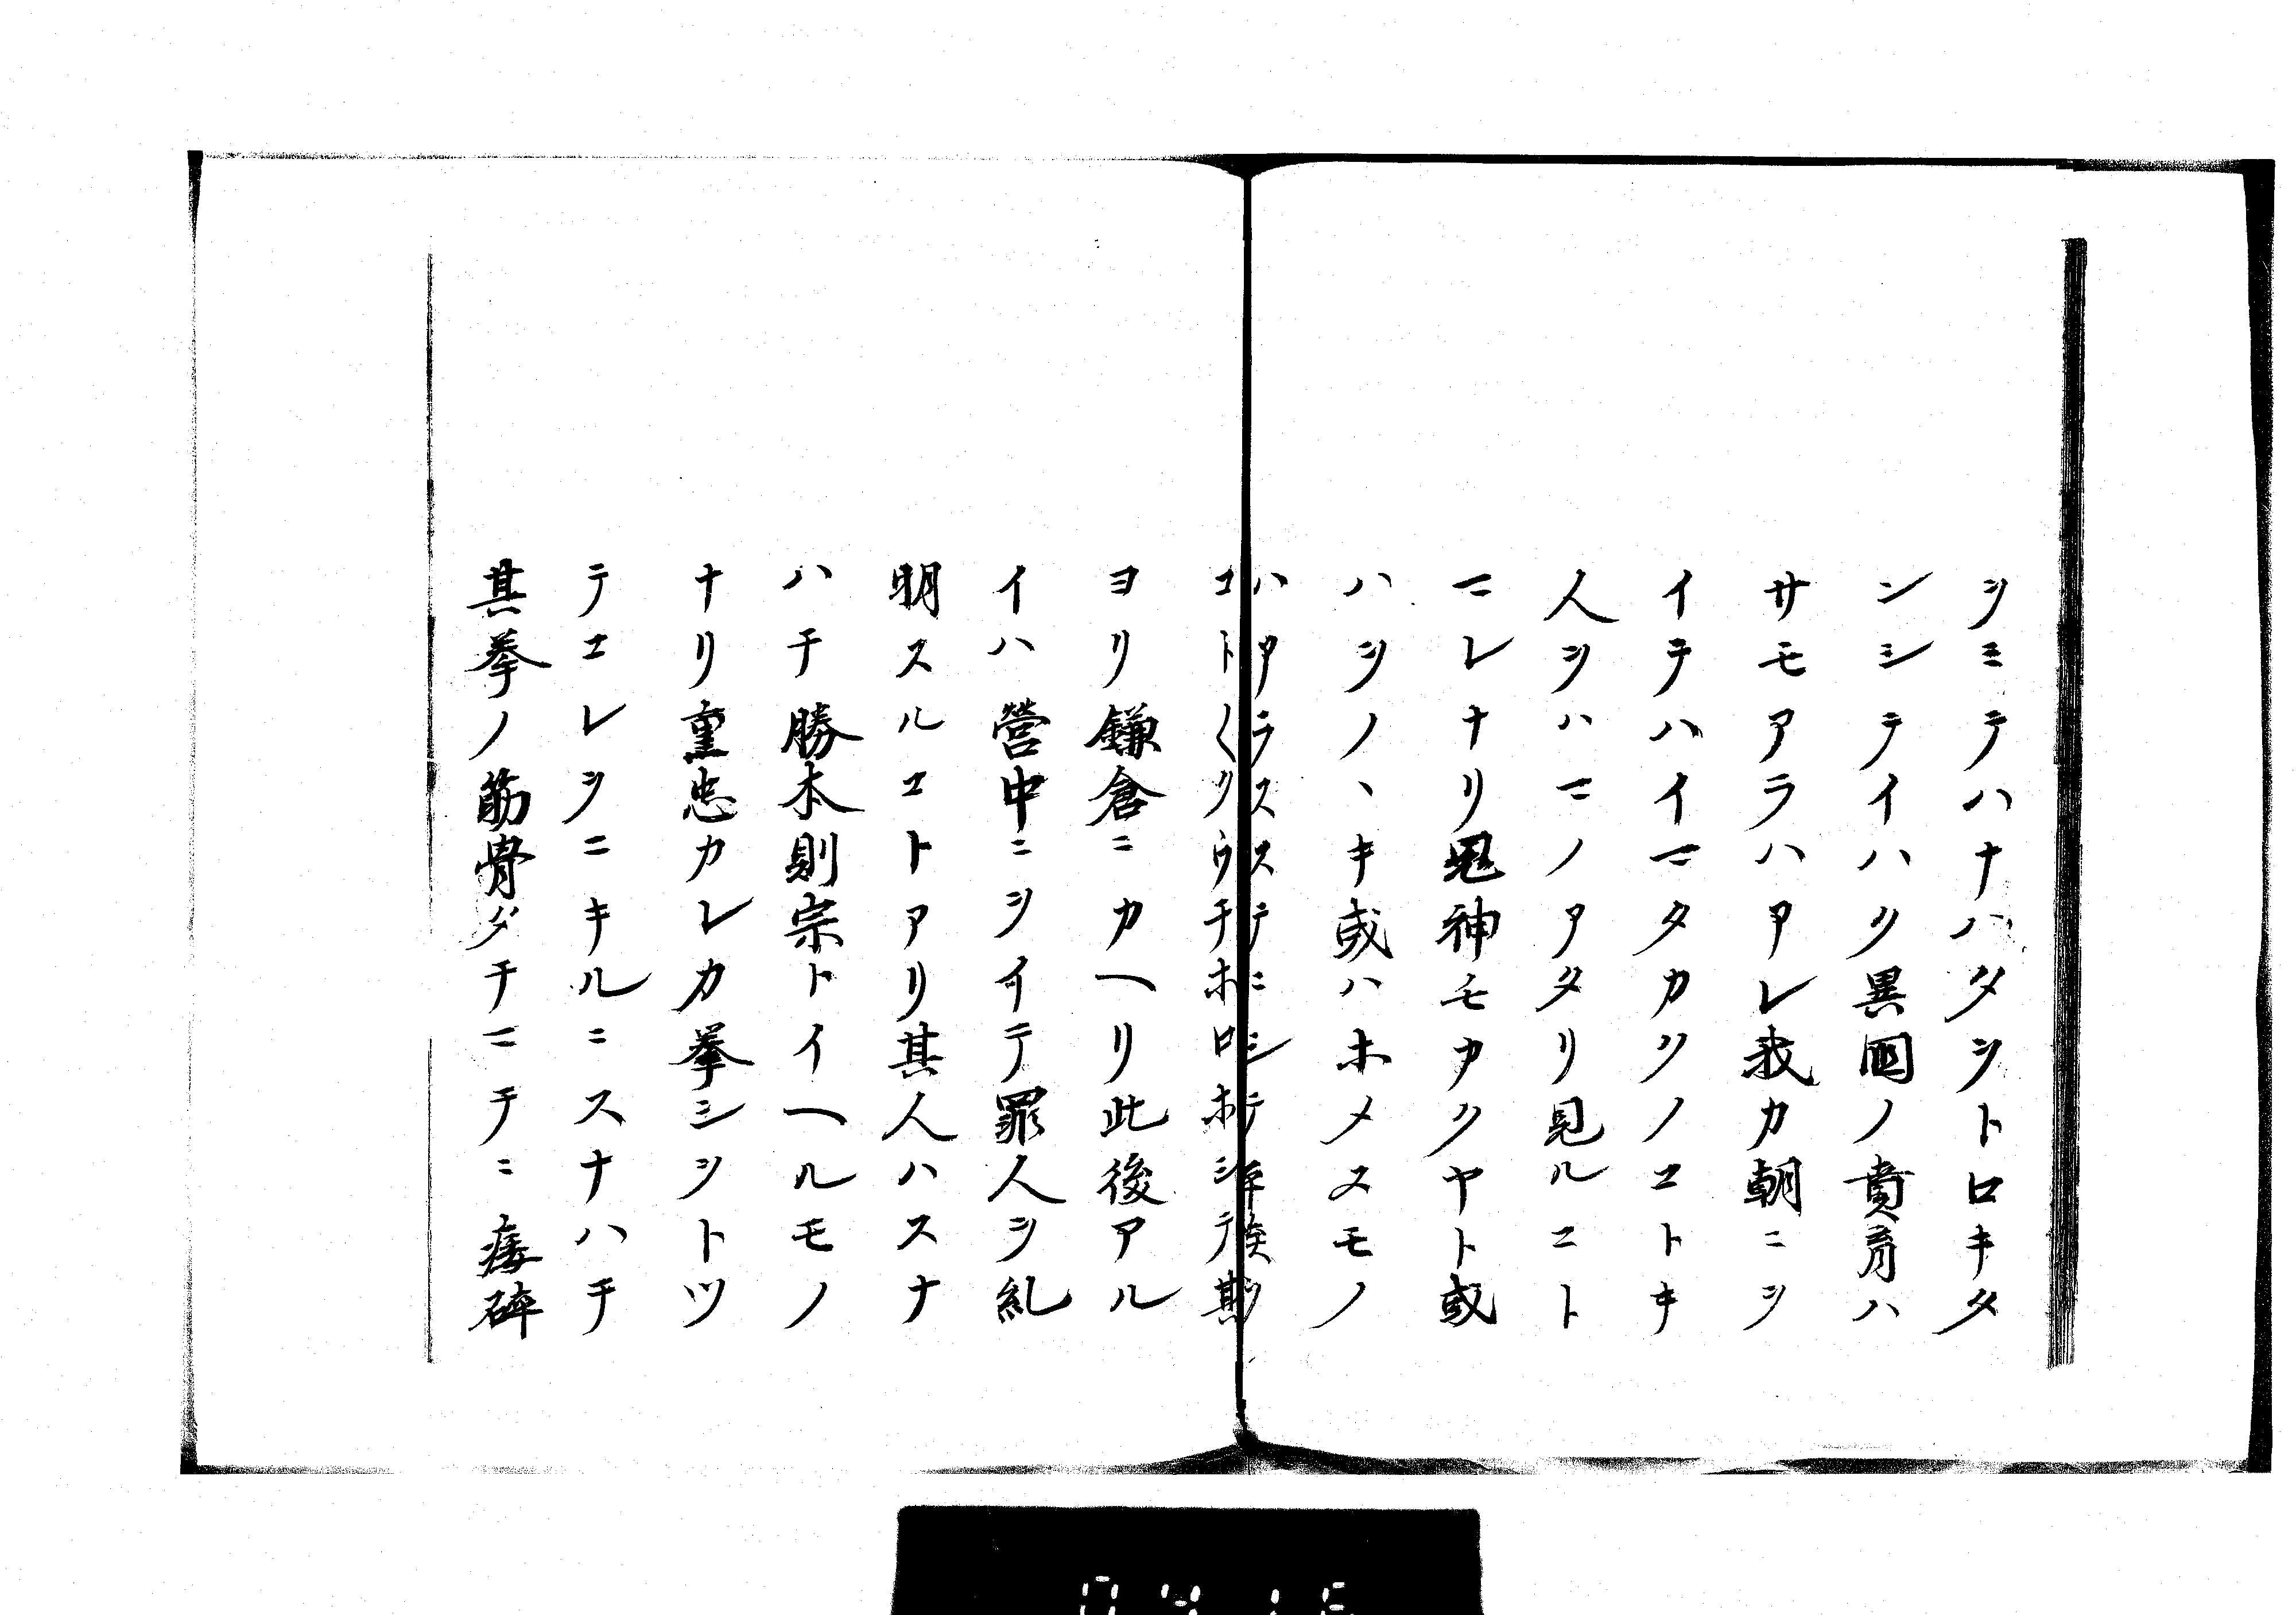 シミテハナハタシトロキタ
ンシテイハク異國ノ賁育ハ
サモアラハアレ我カ朝ニシ
イテハイマタカクノコトキ
人ヲハマノアタリ見ルコト
マレナリ鬼神モカクヤト或
ハヲノヽキ或ハホメスモノ
ハアラスステニシテ平候ツ
コト〱クウチホロホシテ其
ヨリ鎌倉ニカヘリ此後アル
イハ營中ニヲイテ罪人ヲ糺
明スルコトアリ其人ハスナ
ハチ勝木則宗トイヘルモノ
ナリ重忠カレカ拳シツトツ
テコレヲニキルニスナハチ
其拳ノ筋骨タチマチニ痿碎